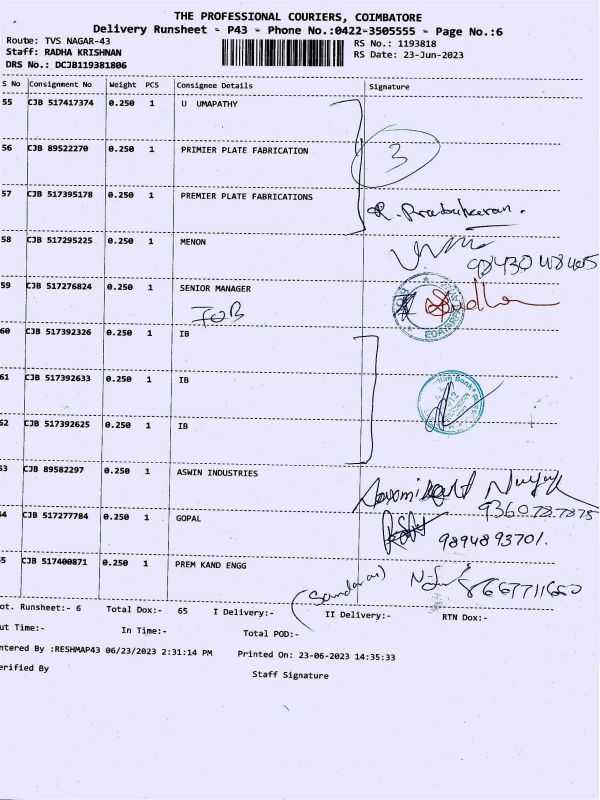 THE PROFESSIONAL COURIERS, COIMBATORE
Delivery Runsheet - P43 - Phone No.:0422-3505555 - Page No.:6
Route: TVS NAGAR-43 RS No.: 1193818
Staff: RADHA KRISHNAN RS Date: 23-Jun-2023
DRS No.: DCJB119381806
S No Consignment No Weight PCS Consignee Details Signature
55 CJB 517417374 0.250 1 U UMAPATHY
56 CJB 89522270 0.250 1 PRIMIER PLATE FABRICATION 3
57 CJB 517395178 0.250 1 PREMIER PLATE FABRICATIONS
R. Prabukaran.
58 CJB 517295225 0.250 1 MENON
59 CJB 517276824 0.250 1 SENIOR MANAGER
IOB
60 CJB 517392326 0.250 1 IB
61 CJB 517392633 0.250 1 IB
62 CJB 517392625 0.250 1 IB
53 CJB 89582297 0.250 1 ASWIN INDUSTRIES
9360787875
54 CJB 517277784 0.250 1 GOPAL
9894893701.
55 CJB 517400871 0.250 1 PREM KAND ENGG
(Sundaran) 8667711660
ot. Runsheet:- 6 Total Dox:- 65 I Delivery:- II Delivery:- RTN Dox:-
ut Time:- In Time:- Total POD:-
ntered By :RESHMAP43 06/23/2023 2:31:14 PM Printed On: 23-06-2023 14:35:33
erified By Staff Signature